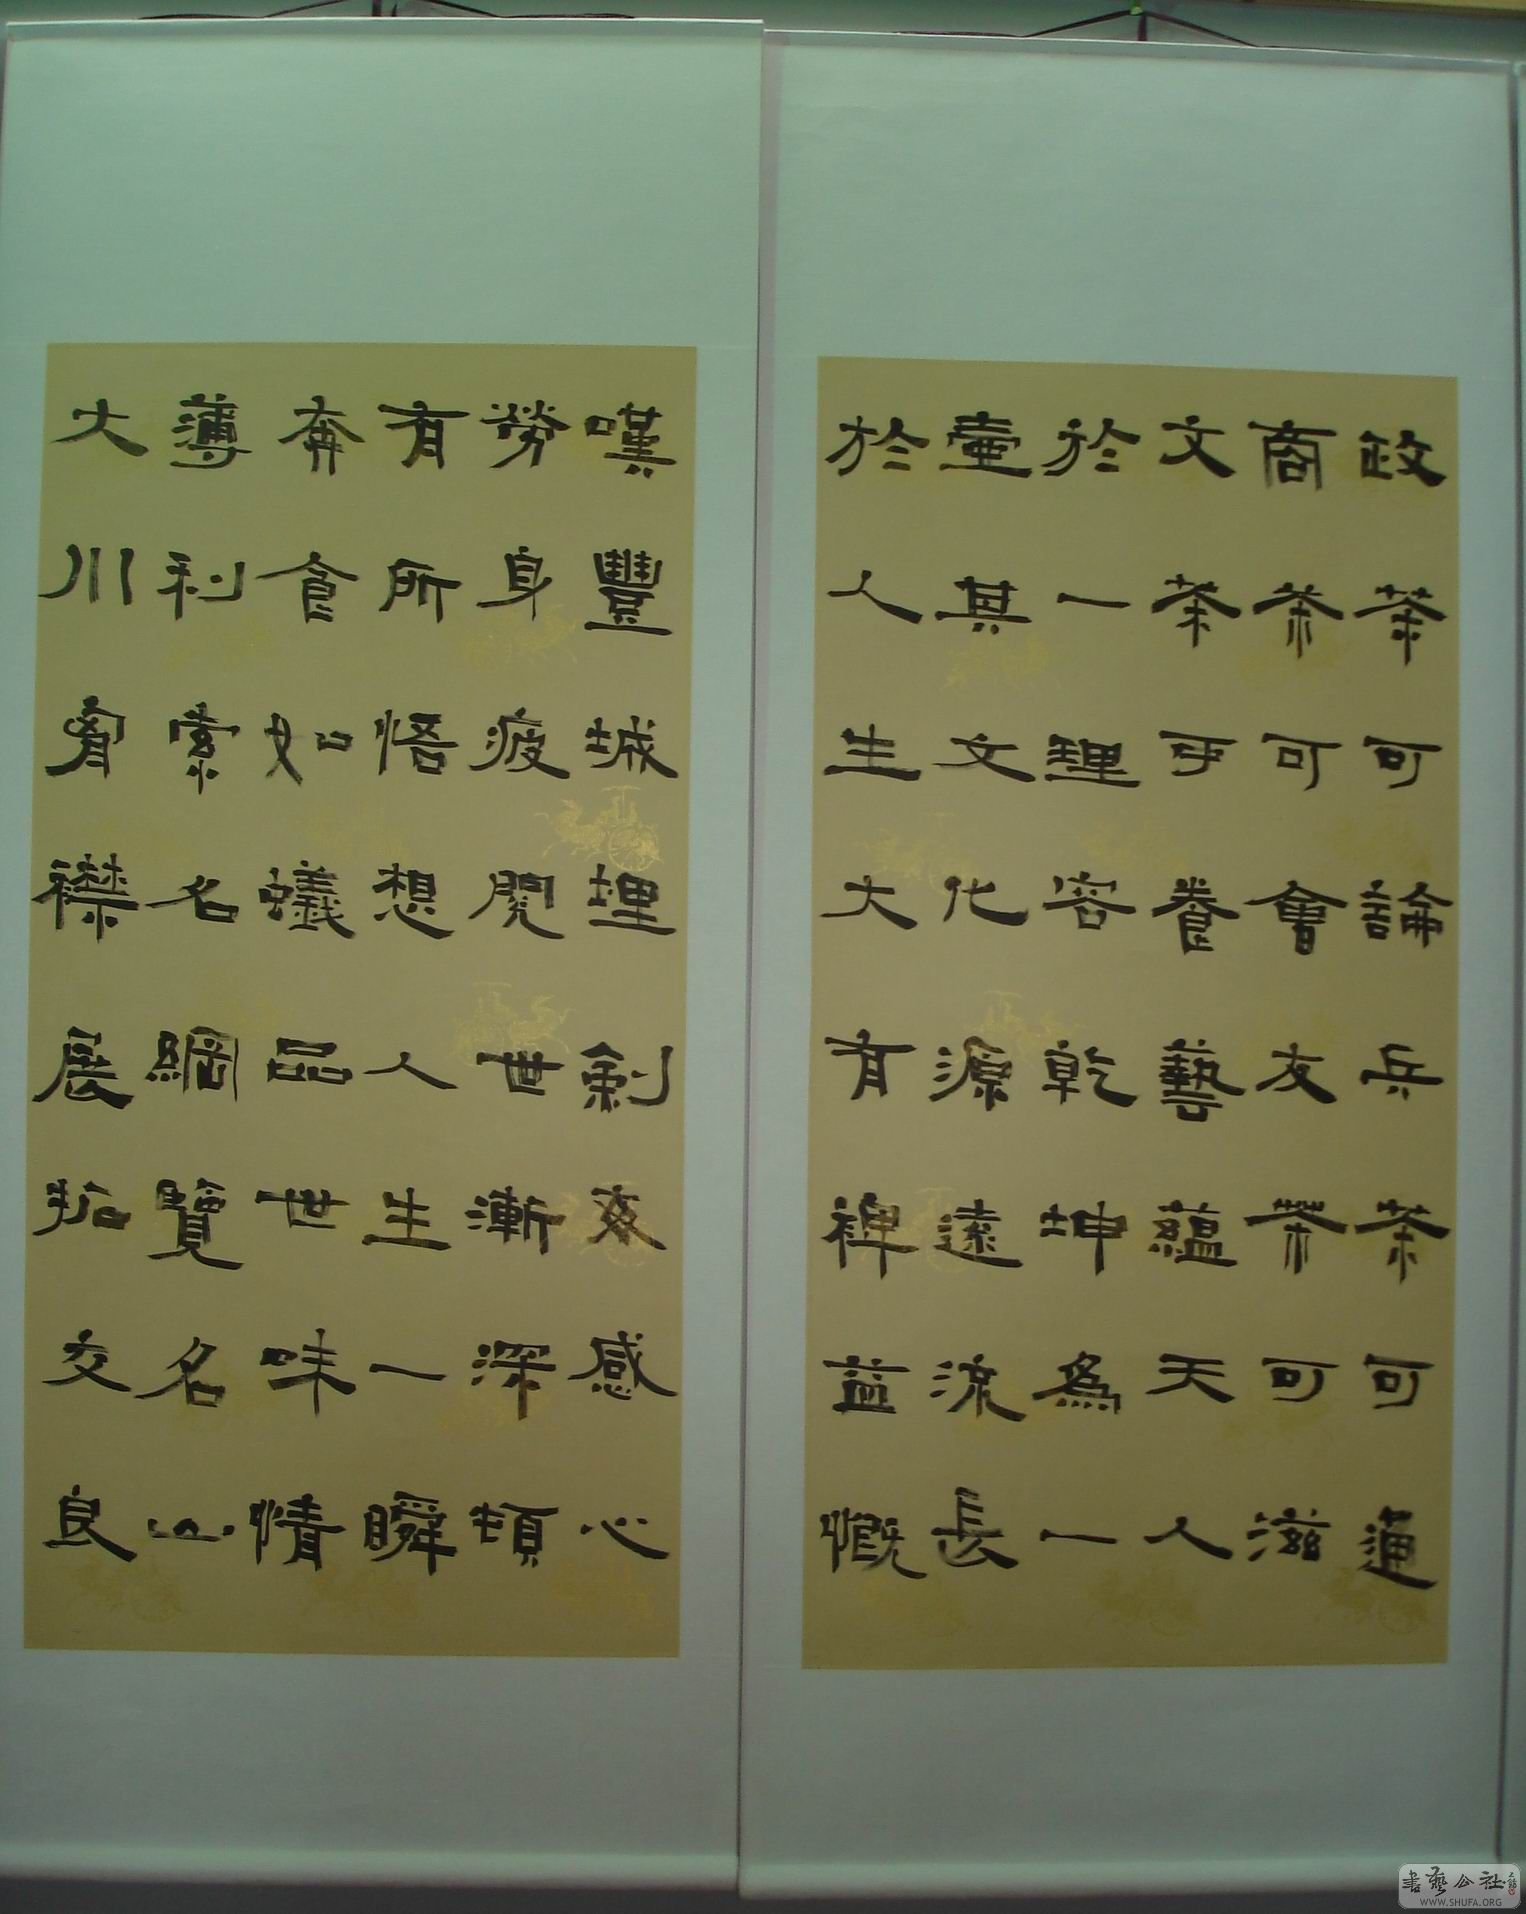 政茶可論兵茶可通
商茶可會友茶可滋
文茶乎養藝蘊天人
於一理容乾坤為一
壷其文化源遠流長
於人生大有裨益慨
嘆豐城埋劍爽感心
勞身疲閱世漸深頓
有所悟想人生一瞬
奔食如蟻品世味情
薄利索名綱覽名山
大川胷襟展拓交良
書藝公社
WWW.SHUFA.ORG